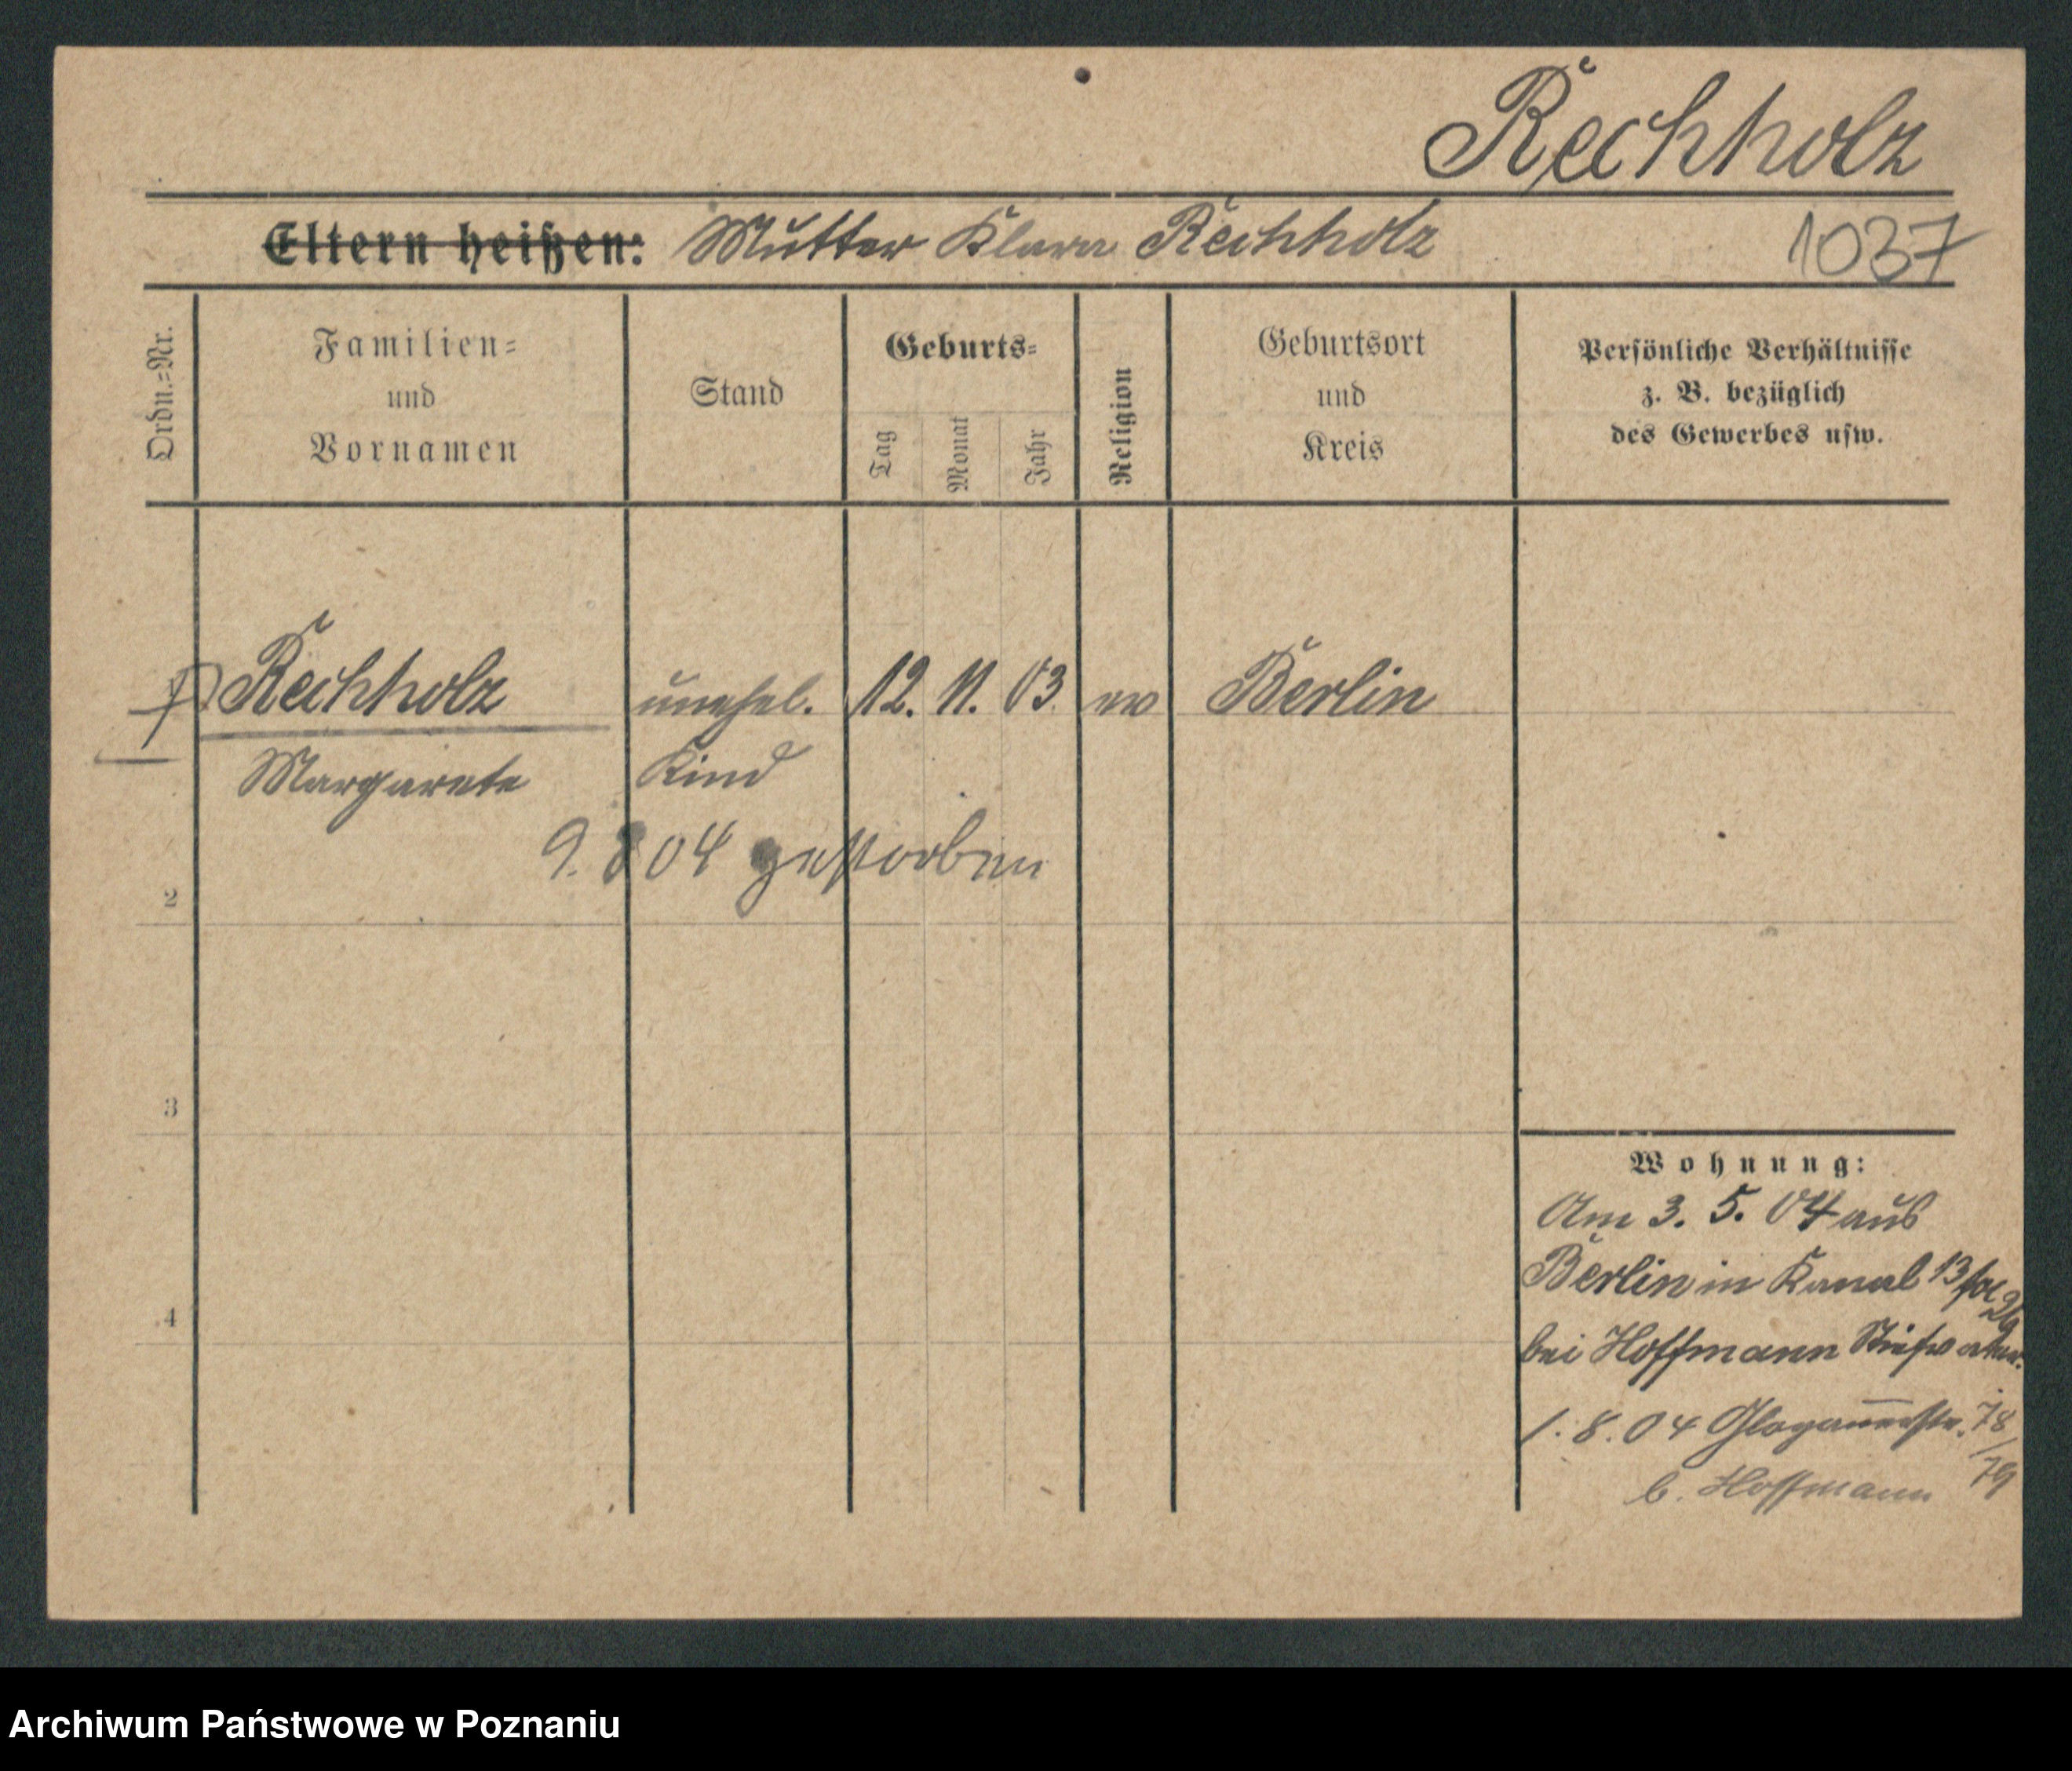 Rechholz
Eltern heißen: Mutter Klara Rechholz
1037
Ordn.=Nr.
Familien=
und
Vornamen
Stand
Geburts=
Tag
Monat
Jahr
Religion
Geburtsort
und
Kreis
Persönliche Verhältnisse
z. B. bezüglich
des Gewerbes usw.
Rechholz unehel. 12. 11. 03. ev Berlin
Margarete Kind
9. 8 04 gestorben
2
3
4
Wohnung:
Am 3. 5. 04 aus
Berlin in Kanal 13
bei Hoffmann
1. 8. 04 Glogauerstr. 78/79
b. Hoffmann
Archiwum Państwowe w Poznaniu